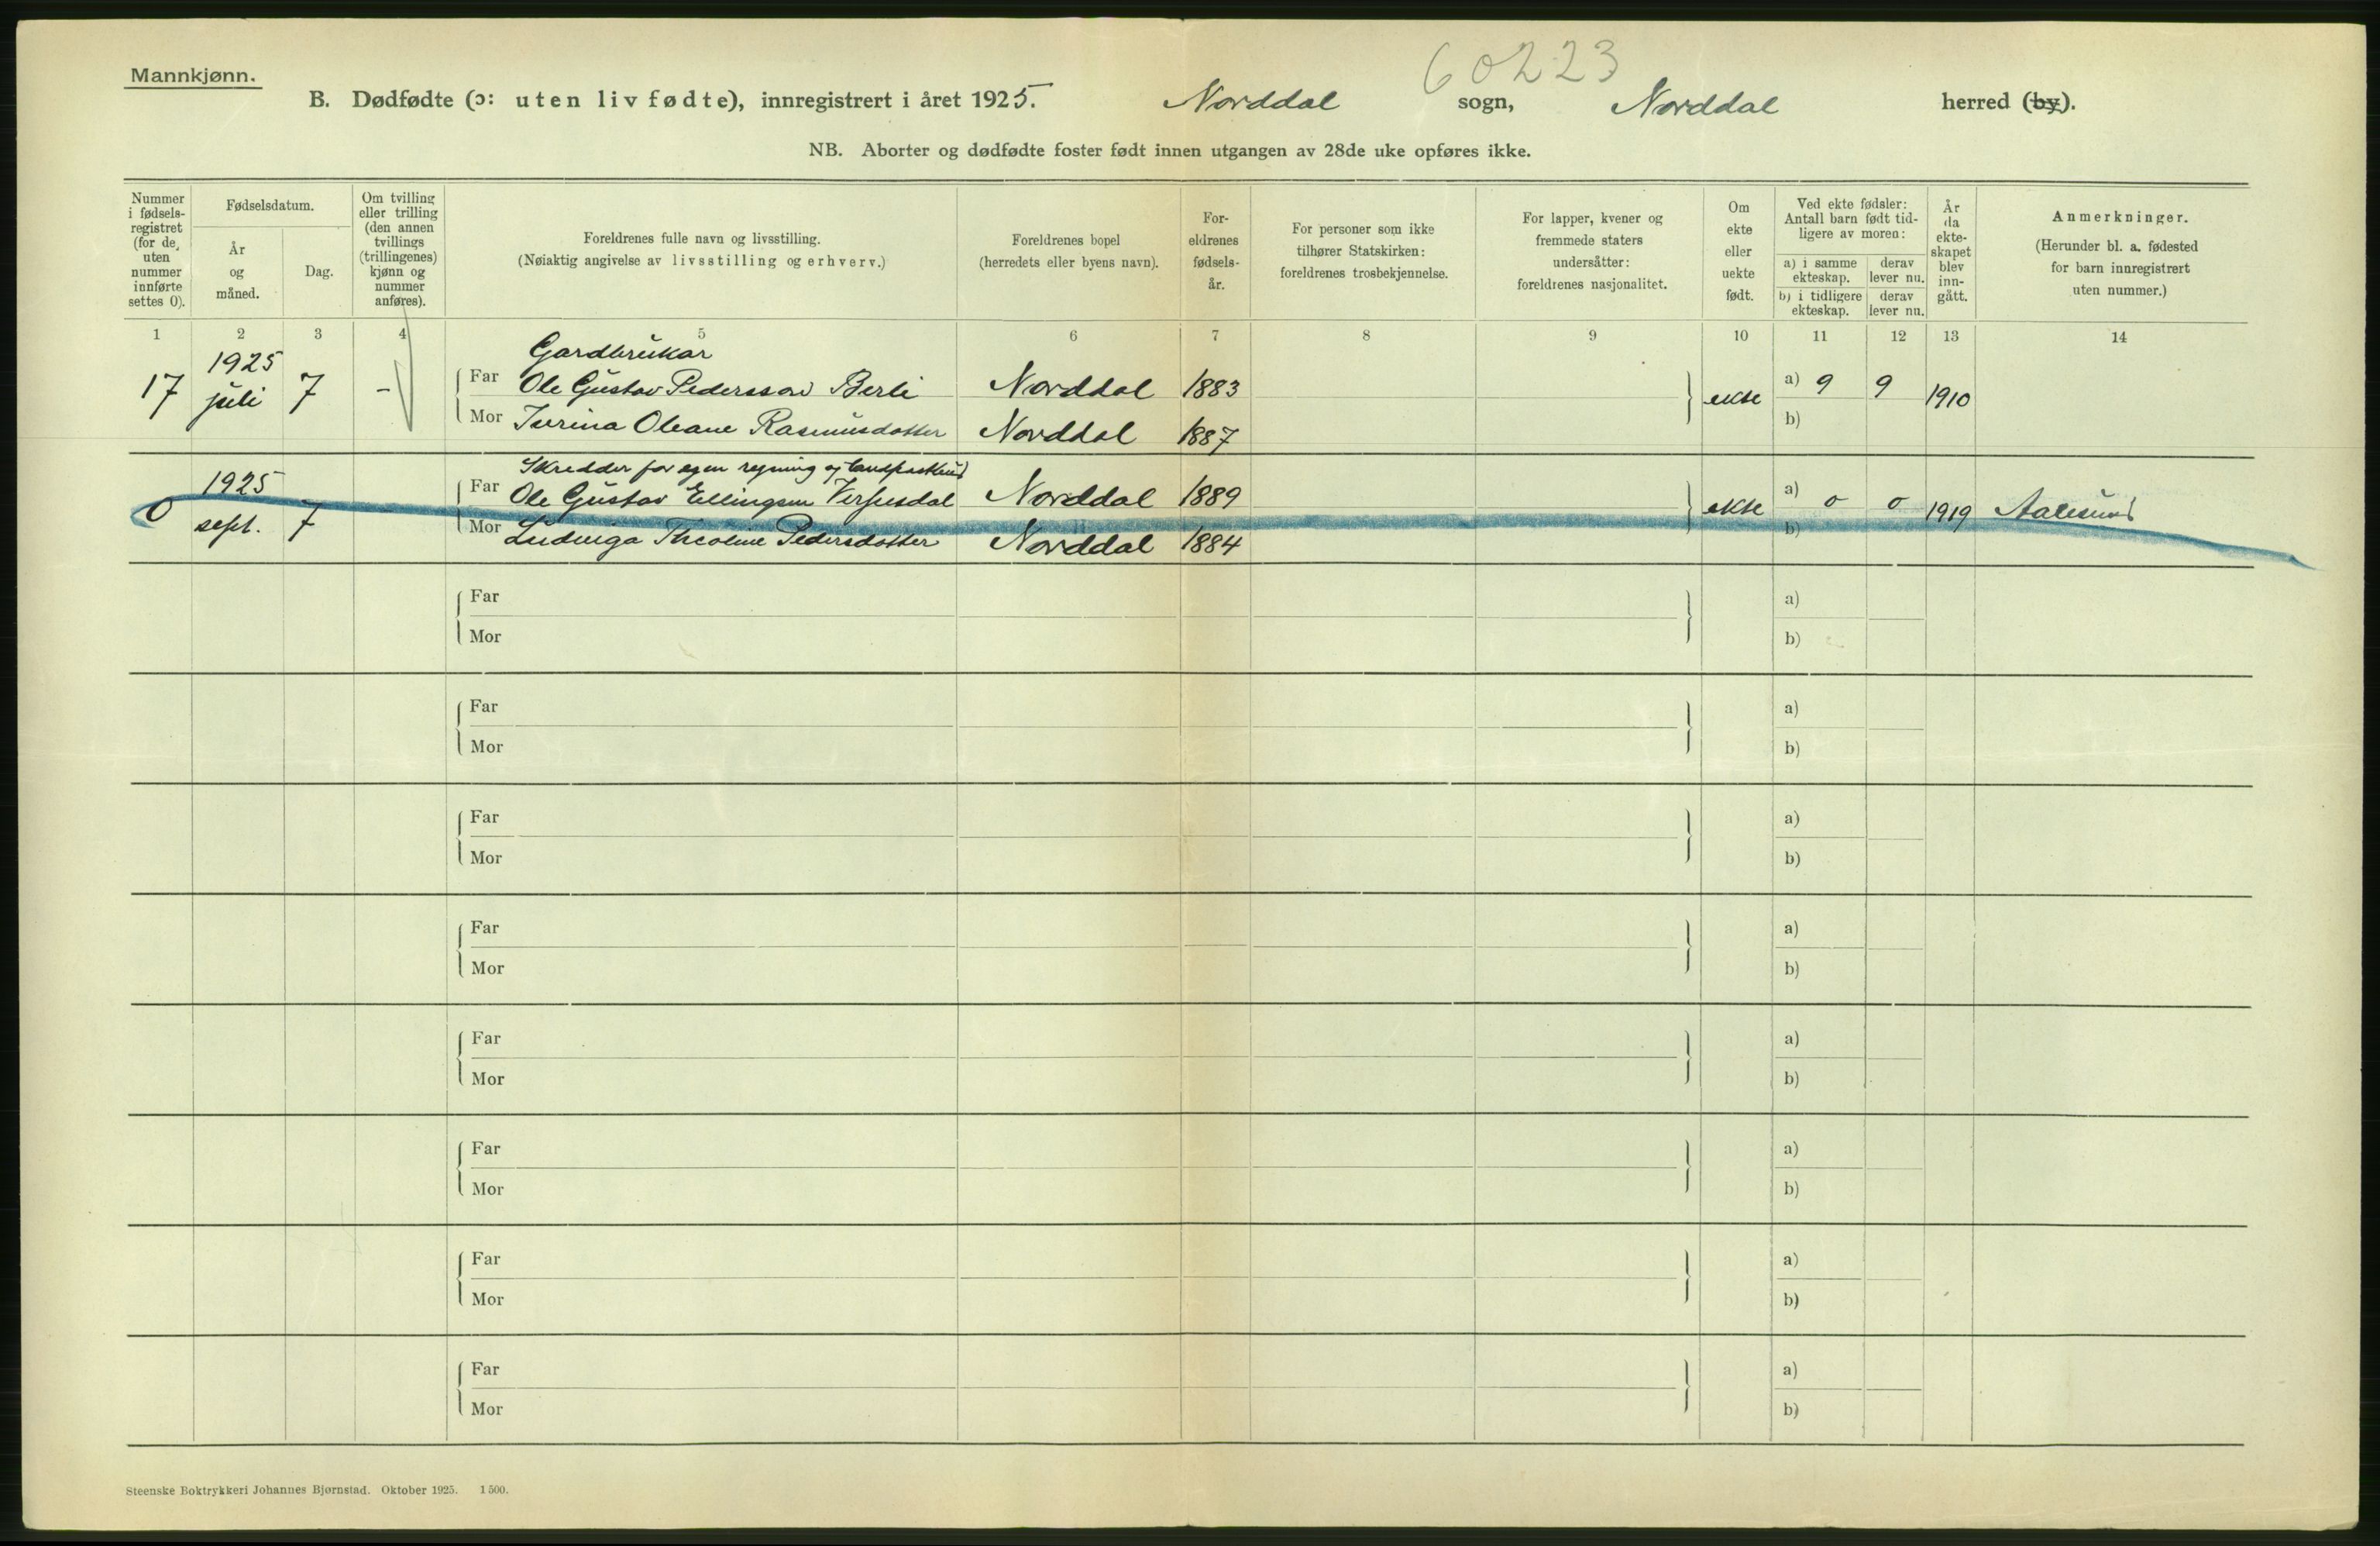 60223
Mannkjønn.
B. Dødfødte (ɔ: uten liv fødte), innregistrert i året 1925. Norddal sogn, Norddal herred (by).
NB. Aborter og dødfødte foster født innen utgangen av 28de uke opføres ikke.
Nummer
i fødsels-
registret
(for de
uten
nummer
innførte
settes 0).
Fødselsdatum.
År
og
måned.
Dag.
Om tvilling
eller trilling
(den annen
tvillings
(trillingenes)
kjønn og
nummer
anføres).
Foreldrenes fulle navn og livsstilling.
(Nøiaktig angivelse av livsstilling og erhverv.)
Foreldrenes bopel
(herredets eller byens navn).
For-
eldrenes
fødsels-
år.
For personer som ikke
tilhører Statskirken:
foreldrenes trosbekjennelse.
For lapper, kvener og
fremmede staters
undersåtter:
foreldrenes nasjonalitet.
Om
ekte
eller
uekte
født.
Ved ekte fødsler:
Antall barn født tid-
ligere av moren:
a) i samme
ekteskap.
derav
lever nu.
b) i tidligere
ekteskap.
derav
lever nu.
År
da
ekte-
skapet
blev
inn-
gått.
Anmerkninger.
(Herunder bl. a. fødested
for barn innregistrert
uten nummer.)
1 2 3 4 5 6 7 8 9 10 11 12 13 14
1925 Gardbrukar
17 juli 7 - Far Ole Gustav Pedersson Berli Norddal 1883 ekte a) 9 9 1910
Mor Oleane Rasmusdotter Norddal 1887 b)
1925 Skredder for egen regning og landpostbud
0 sept. 7 Far Ole Gustav Ellingsen Norddal 1889 ekte a) 0 0 1919 Aalesund
Mor Ludviga Pedersdotter Norddal 1884 b)
Far a)
Mor b)
Far a)
Mor b)
Far a)
Mor b)
Far a)
Mor b)
Far a)
Mor b)
Far a)
Mor b)
Far a)
Mor b)
Far a)
Mor b)
Steenske Boktrykkeri Johannes Bjørnstad. Oktober 1925. 1500.